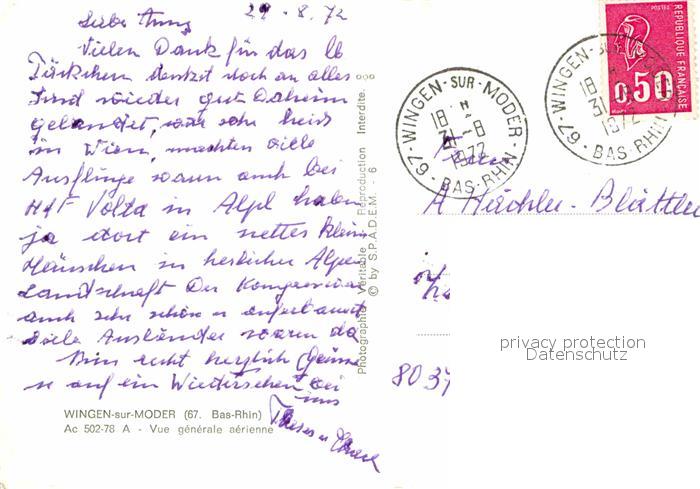 29.8.72
Vielen Dank für das lb
denkst doch an alles
sind wieder gut Daheim
gelandet, war sehr heiß
in Wien, machten viele
Ausflüge waren auch bei
Volta in Alpl haben
ja dort ein nettes klein
Häuschen in herlicher Alpen
Landschaft Der Kongress war
auch sehr schön u
viele Ausländer waren da
Bin recht herzlich Grüss
e auf ein Wiedersehen bei
uns
WINGEN-sur-MODER (67. Bas-Rhin)
Ac 502-78 A - Vue générale aérienne
Photographie Véritable Reproduction Interdite.
© by S.P.A.D.E.M. - 6
67 - WINGEN-SUR-MODER - BAS-RHIN
18 H
31-8
1972
67 - WINGEN-SUR-MODER - BAS-RHIN
18 H
31-8
1972
POSTES
RÉPUBLIQUE FRANÇAISE
0,50
A
803
privacy protection
Datenschutz